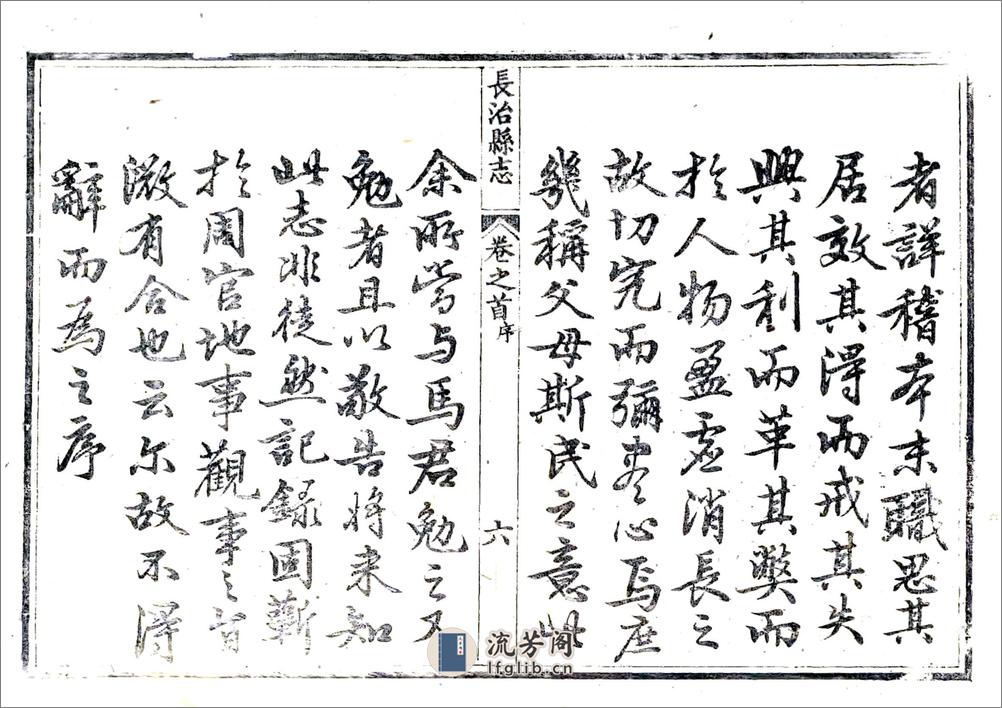 者詳稽本末職思其
居效其得而戒其失
興其利而革其弊而
於人物盈虛消長之
故切究而彌盡心焉庶
幾稱父母斯民之意此
長治縣志
卷之首序
六
余所嘗与馬君勉之又
勉者且以敬告將来知
此志非徒然記錄固蘄
於周官地事觀事之旨
微有合也云尔故不得
辭而為之序
流芳阁
lfglib.cn